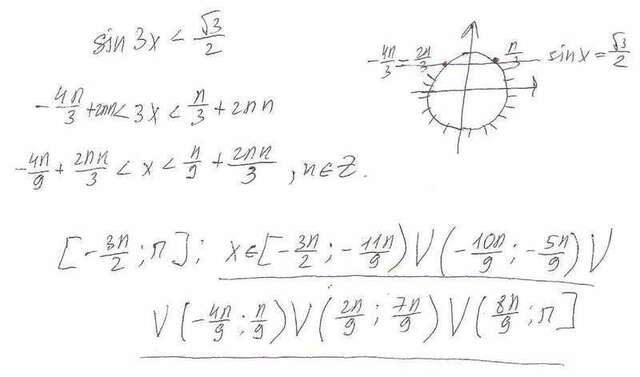 sin 3x < √3/2
-4π/3 = 2π/3   π/3   sin x = √3/2
-4π/3 + 2πn < 3x < π/3 + 2πn
-4π/9 + 2πn/3 < x < π/9 + 2πn/3 , n ∈ Z.
[-3π/2 ; π] ; x ∈ [-3π/2 ; -11π/9) V (-10π/9 ; -5π/9) V
V (-4π/9 ; π/9) V (2π/9 ; 7π/9) V (8π/9 ; π]